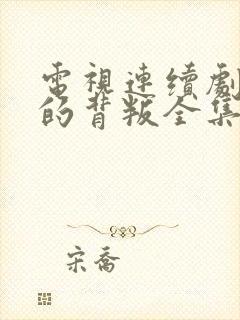 電視連續劇
的背叛全集
宋喬